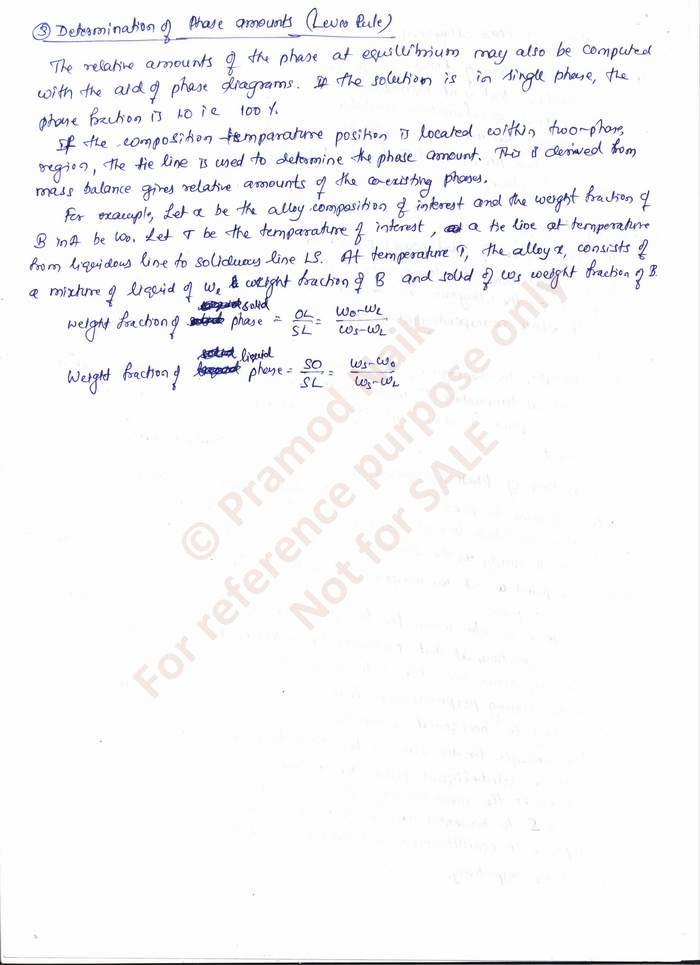 ③ Determination of Phase amounts (Lever Rule)
The relative amounts of the phase at equillibrium may also be computed
with the aid of phase diagrams. If the solution is in single phase, the
phase fraction is 1.0 i.e 100 %.
If the composition temparature position is located within two-phase
region, the tie line is used to determine the phase amount. This is derived from
mass balance gives relative amounts of the co-existing phases.
For example, Let x be the alloy composition of interest and the weight fraction of
B in A be W₀. Let T be the temparature of interest, a tie line at temperature
from liquidous line to soliduous line LS. At temperature T, the alloy x, consists of
a mixture of liquid of WL weight fraction of B and solid of Ws weight fraction of B.
weight fraction of solid phase = OL/SL = W₀-WL/Ws-WL
Weight fraction of liquid phase = SO/SL = Ws-W₀/Ws-WL
© Pramod Naik
For reference purpose only
Not for SALE